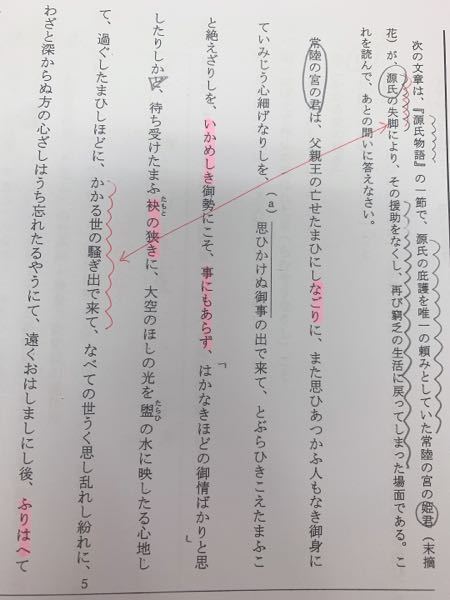 次の文章は、『源氏物語』の一節で、源氏の庇護を唯一の頼みとしていた常陸の宮の姫君(末摘
花)が、源氏の失脚により、その援助をなくし、再び窮乏の生活に戻ってしまった場面である。こ
れを読んで、あとの問いに答えなさい。
常陸の宮の君は、父親王の亡せたまひにしなごりに、また思ひあつかふ人もなき御身に
ていみじう心細げなりしを、(a)思ひかけぬ御事の出で来て、とぶらひきこえたまふこ
と絶えざりしを、いかめしき御勢にこそ、事にもあらず、「はかなきほどの御情ばかりと思
したりしかど、」待ち受けたまふ袂の狭きに、大空のほしの光を盥の水に映したる心地し
たもと
たらひ
て、過ぐしたまひしほどに、かかる世の騒ぎ出で来て、なべての世うく思し乱れし紛れに、
わざと深からぬ方の心ざしはうち忘れたるやうにて、遠くおはしましにし後、ふりはへて
5